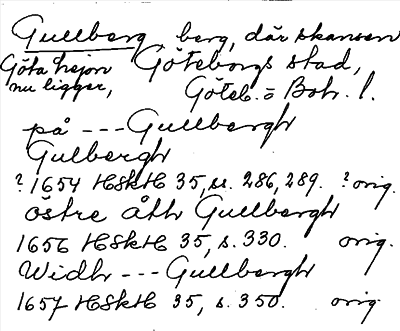 Gullberg, berg, där skansen
Göta lejon Göteborgs stad,
nu ligger, Göteb. o Boh. l.
på --- Gullbergh
Gulbergh
? 1654 HSkH 35, ss. 286, 289. ? orig.
östre åth Gullbergh
1656 HSkH 35, s. 330. orig.
Widh --- Gullbergh
1657 HSkH 35, s. 350. orig